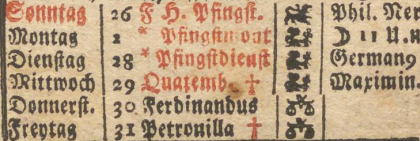 Sonntag 26 F H. Pfingst. Phil. Ner
Montag 2 * Pfingstmont ☽ 11 U. n
Dienstag 28 * Pfingstdienst Germang
Mittwoch 29 Quatemb. † Maximin.
Donnerst. 30 Ferdinandus
Freytag 31 Petronilla †